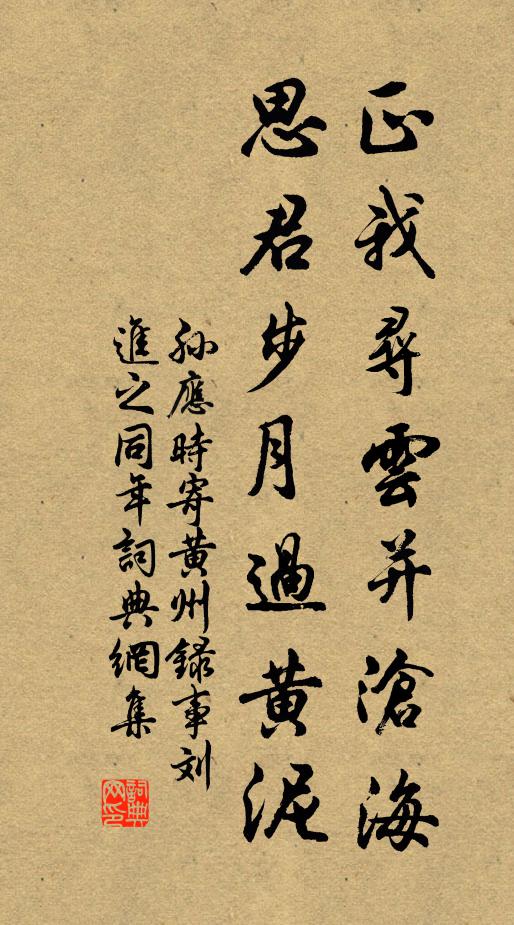 正我尋雲并滄海
思君步月過黄泥
孫應時寄黄州録事刘
進之同年詞典網集
詞典
网印